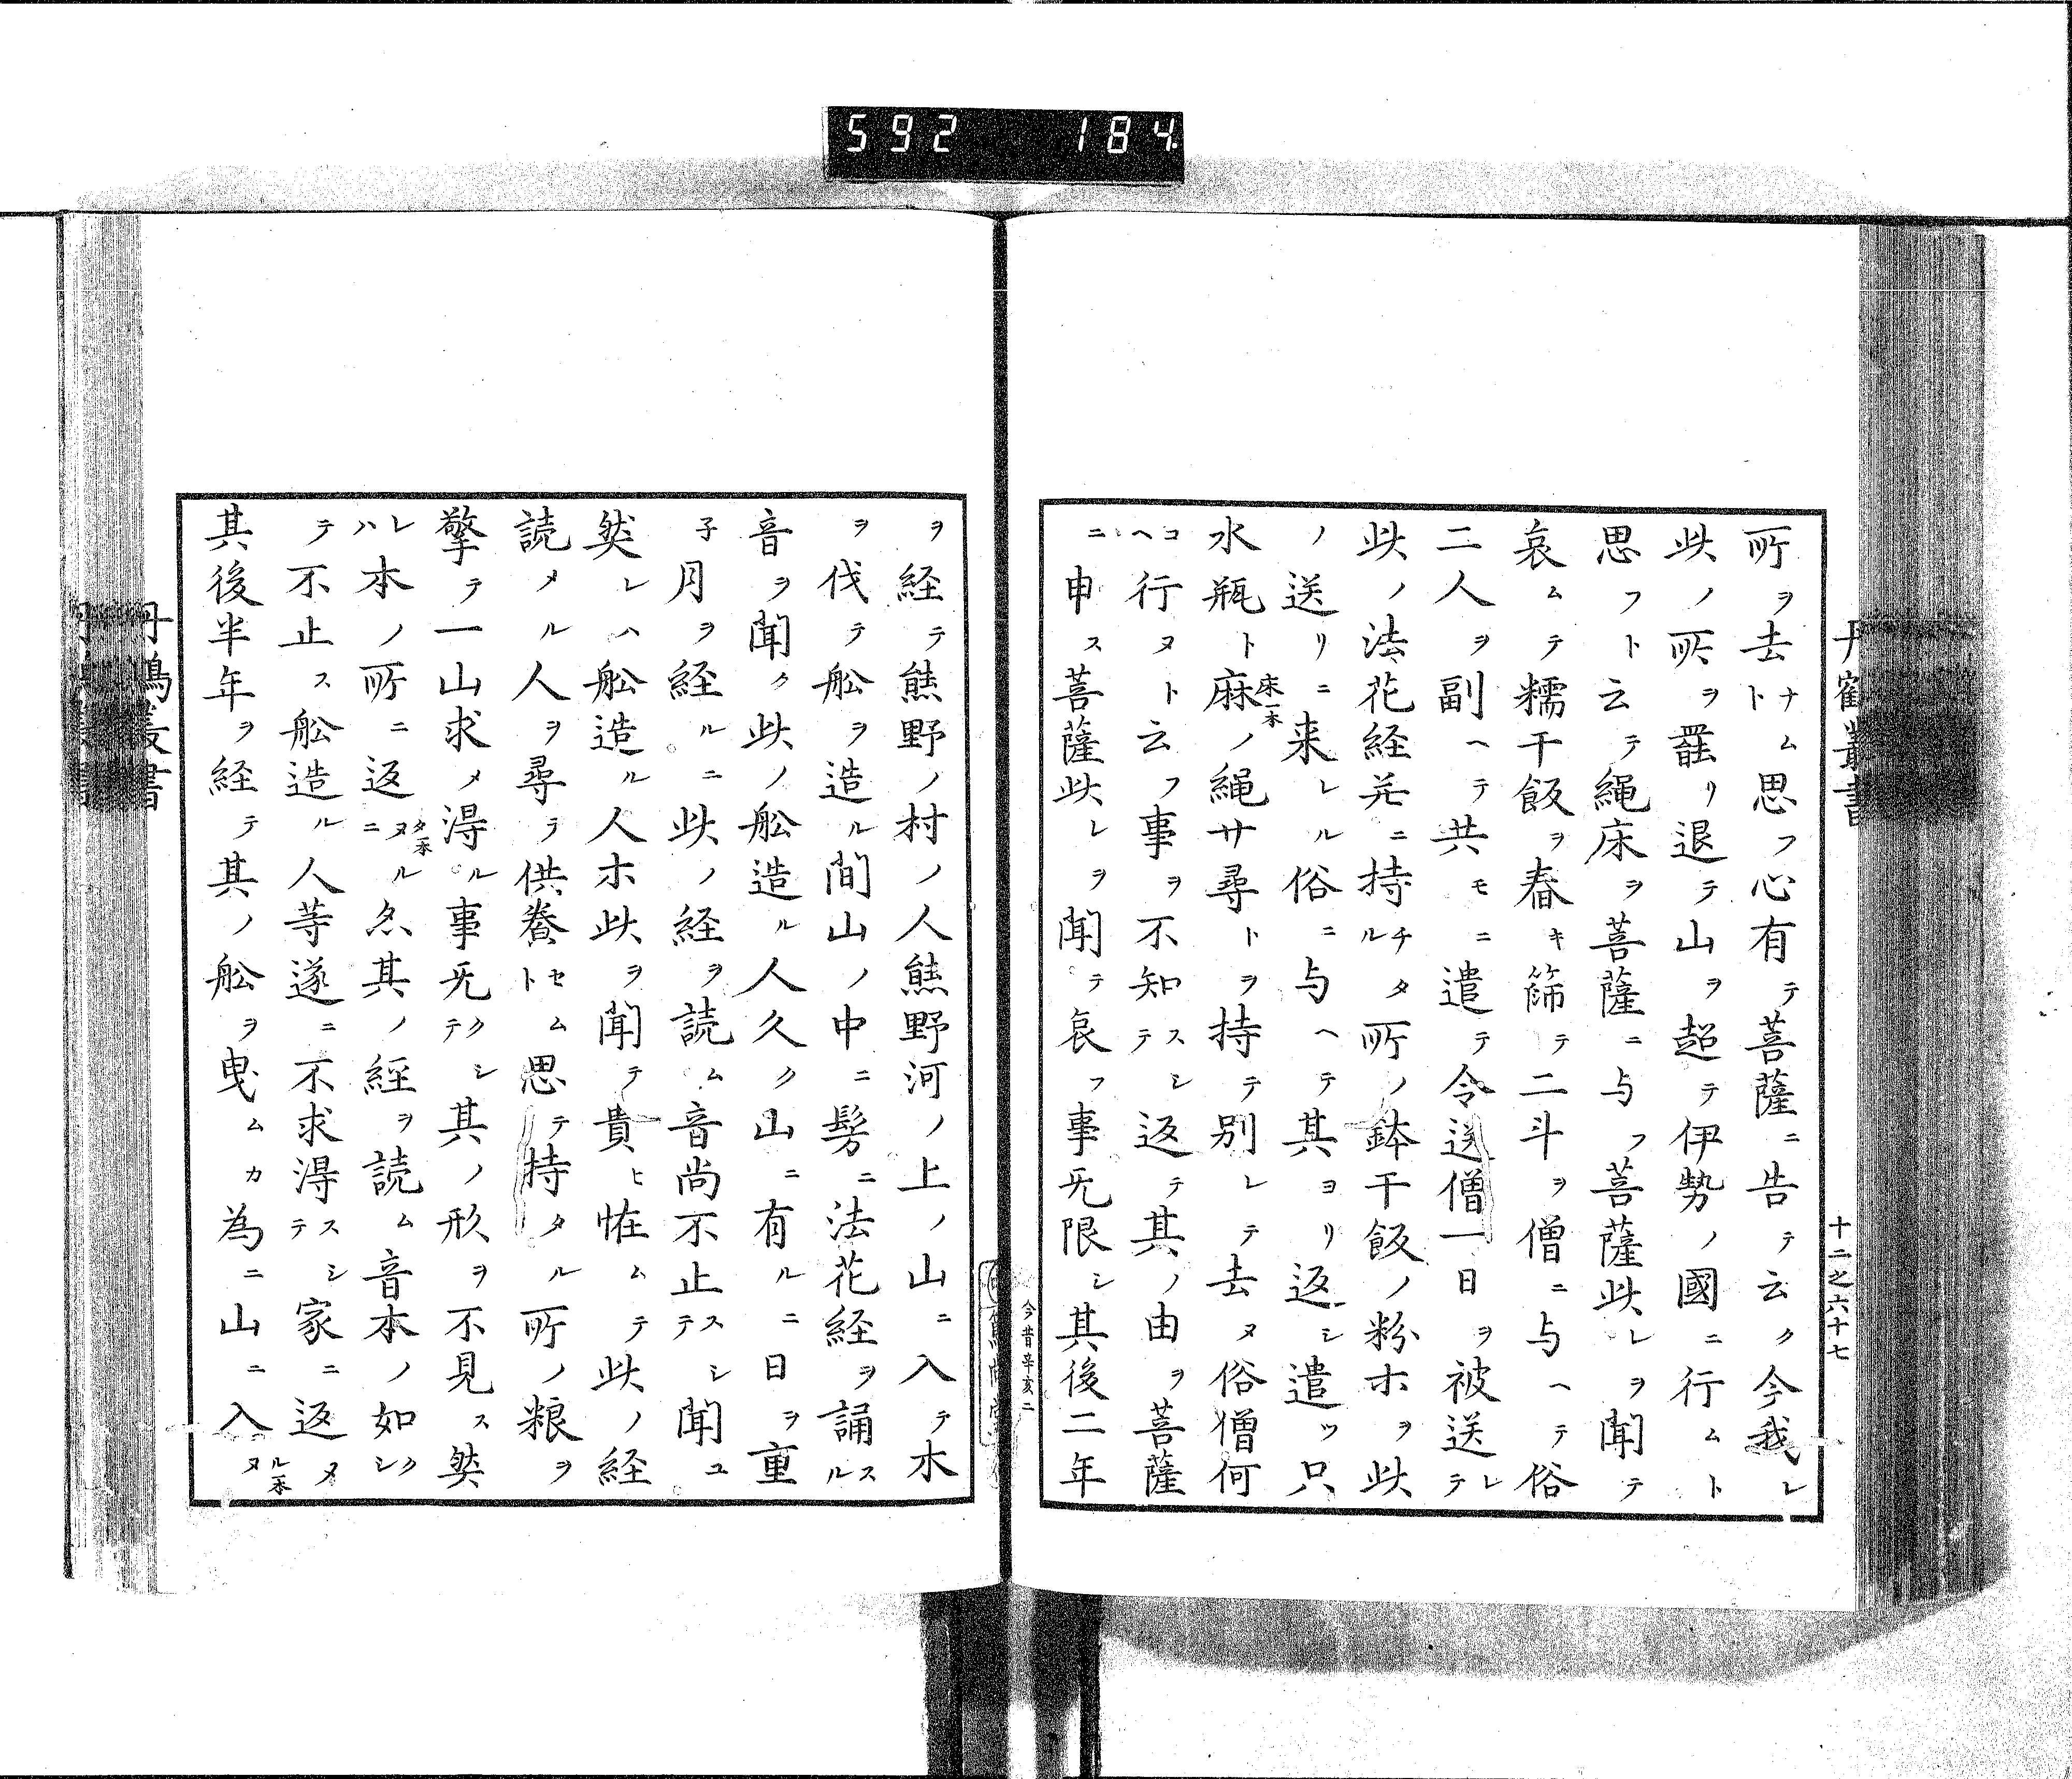 592 184
丹鶴叢書
十二之六十七
所ヲ去ナムト思フ心有テ菩薩ニ告テ云ク今我レ
此ノ所ヲ罷リ退テ山ヲ超テ伊勢ノ國ニ行ムト
思フト云テ繩床ヲ菩薩ニ与フ菩薩此レヲ聞テ
哀ムテ糯干飯ヲ舂キ篩テ二斗ヲ僧ニ与ヘテ俗
二人ヲ副ヘテ共モニ遣テ令送僧一日ヲ被送レテ
此ノ法花経并ニ持チタル所ノ鉢干飯ノ粉ホヲ此
ノ送リニ来レル俗ニ与ヘテ其ヨリ返シ遣ツ只
水瓶ト麻ノ繩廿尋トヲ持テ別レテ去ヌ俗僧何
床一本
コヘ行ヌト云フ事ヲ不知スシテ返テ其ノ由ヲ菩薩
ニ申ス菩薩此レヲ聞テ哀フ事旡限シ其後二年
今昔辛亥二
ヲ経テ熊野ノ村ノ人熊野河ノ上ノ山ニ入テ木
ヲ伐テ舩ヲ造ル間山ノ中ニ髣ニ法花経ヲ誦スル
音ヲ聞ク此ノ舩造ル人久ク山ニ有ルニ日ヲ重
子月ヲ経ルニ此ノ経ヲ読ム音尚不止スシテ聞ユ
然レハ舩造ル人ホ此ヲ聞テ貴ヒ恠ムテ此ノ経
読メル人ヲ尋テ供養セムト思テ持タル所ノ粮ヲ
擎テ一山求メ得ル事旡クシテ其ノ形ヲ不見ス然
レハ本ノ所ニ返ヌルニ尒其ノ経ヲ読ム音本ノ如クシ
タ一本
テ不止ス舩造ル人等遂ニ不求得スシテ家ニ返ヌ
其後半年ヲ経テ其ノ舩ヲ曳ムカ為ニ山ニ入ヌ
ル一本
丹鶴叢書